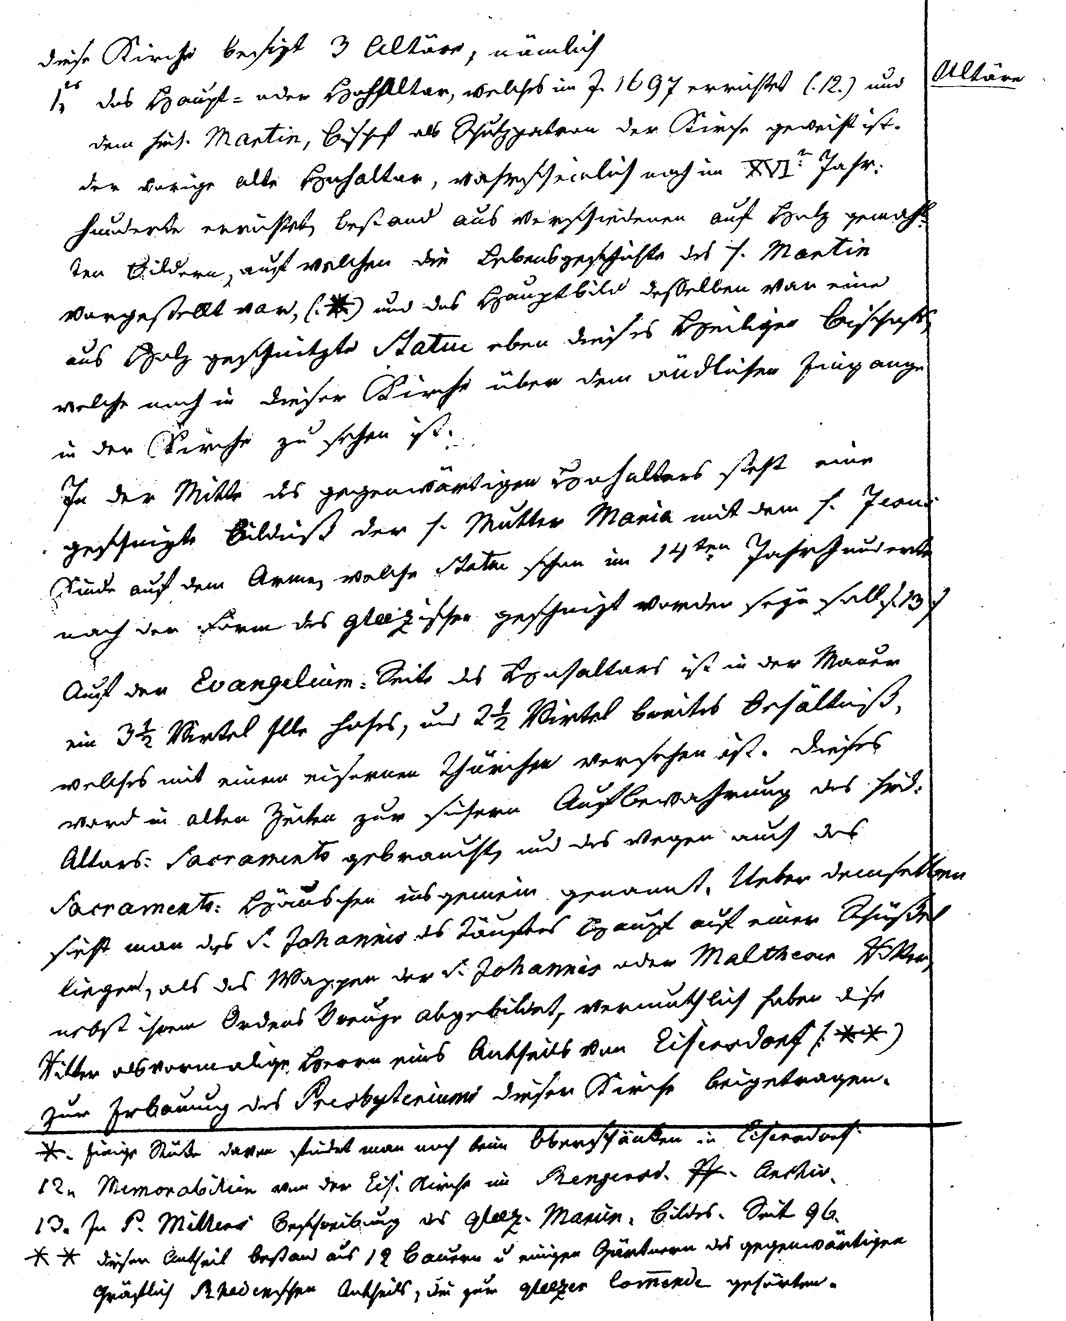 diese Kirche besizt 3 Altäre, nämlich
Altäre
1. das Haupt= oder Hochaltar, welches im J. 1697 errichtet (.12.) und
dem heil. Martin, Bischof als Schutzpatron der Kirche geweiht ist.
der vorige alte Hochaltar, wahrscheinlich noch im XVI.n Jahr:
hunderte errichtet, bestand aus verschiedenen auf Holz gemahl:
ten Bildern, auf welchen die Lebensgeschichte des h. Martin
vorgestellt war, (.*.) und das Hauptbild desselben war eine
aus Holz geschnitzte Statue eben dieses Heiligen Bischofs,
welche noch in dieser Kirche über dem südlichen Eingange
in der Kirche zu sehen ist.
In der Mitte des gegenwärtigen Hochaltars steht eine
geschnizte Bildniß der h. Mutter Maria mit dem h. Jesus
Kinde auf dem Arme, welche Statue schon im 14ten Jahrhunderte
nach der Form des glazischen geschnizt worden seyn soll (.13.)
Auf der Evangelium: Seite des Hochaltars ist in der Mauer
ein 3½ Virtel Elle hohes, und 2½ Virtel breites Behältniß,
welches mit einem eisernen Thürchen versehen ist. dieses
ward in alten Zeiten zur sichern Aufbewahrung des heil:
Altars: Sacraments gebraucht, und deswegen auch das
Sacraments: Häuschen insgemein genannt. Ueber demselben
sieht man des h. Johannis des Täufers Haupt auf einer Schüßel
liegen, als das Wappen der h. Johannis oder Maltheser Ritter,
nebst ihrem Ordens Kreuze abgebildet, vermuthlich haben diese
Ritter als vormalige Herrn eines Antheils von Eisersdorf (.**.)
zur Erbauung des Presbyteriums dieser Kirche beigetragen.
*. Einige Stüke davon findet man noch beim Oberschänken in Eisersdorf.
12. Memorabilien von der Eis. Kirche im Rengersd. Pf. Archiv.
13. In P. Millers Beschreibung des glaz. Marien. Bildes. Seit 96.
** dieser Antheil bestand aus 12 Bauern u einigen Gärtnern des gegenwärtigen
Gräflich Redenschen Antheils, die zur glazer Commende gehörten.